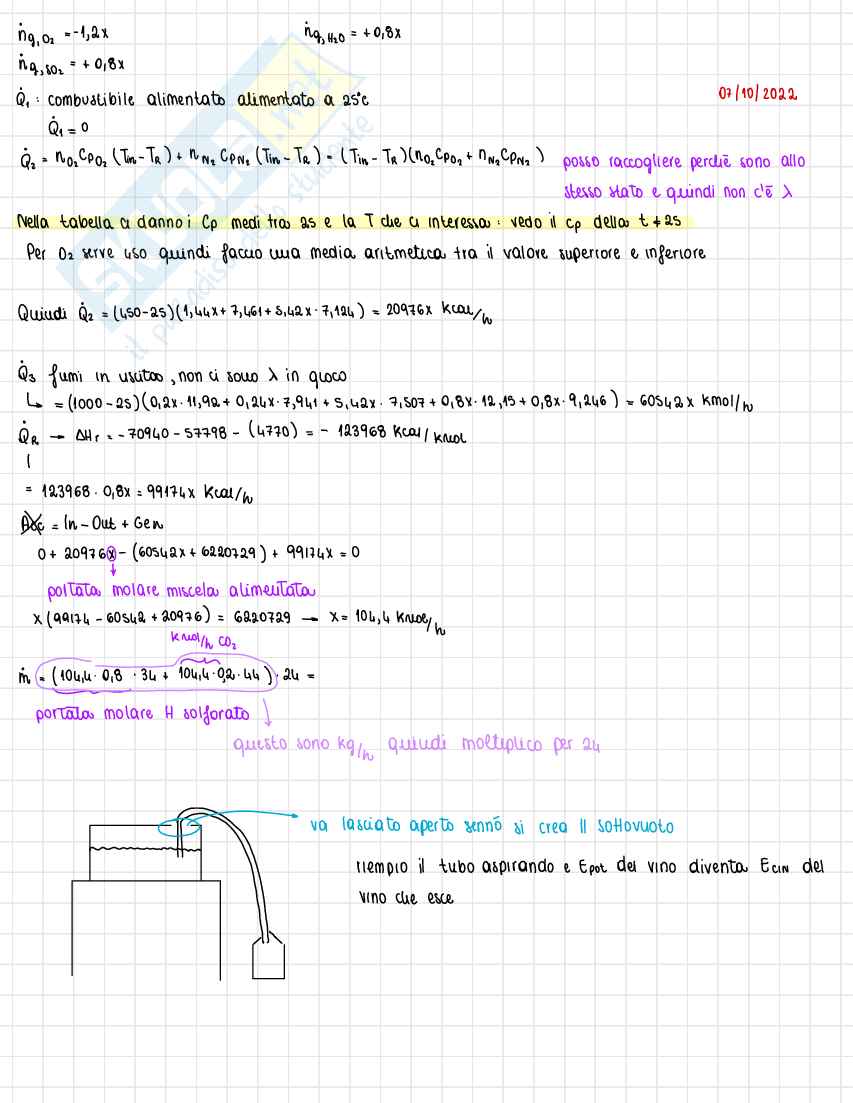 ṅg,O₂ = -1,2x ṅg,H₂O = +0,8x
ṅg,SO₂ = +0,8x
Q̇₁: combustibile alimentato alimentato a 25°C
07/10/2022
Q̇₁ = 0
Q̇₂ = nO₂ CpO₂ (Tin-TR) + nN₂ CpN₂ (Tin-TR) = (Tin-TR)(nO₂CpO₂ + nN₂CpN₂) posso raccogliere perchè sono allo
stesso stato e quindi non c'è λ
Nella tabella ci danno i Cp medi tra 25 e la T che ci interessa: vedo il cp della t ≠ 25
Per O₂ serve 450 quindi faccio una media aritmetica tra il valore superiore e inferiore
Quindi Q̇₂ = (450-25)(1,44x + 7,461 + 5,42x · 7,124) = 20976x Kcal/h
Q̇₃ fumi in uscita, non ci sono λ in gioco
↳ = (1000-25)(0,2x · 11,92 + 0,24x · 7,941 + 5,42x · 7,507 + 0,8x · 12,15 + 0,8x · 9,246) = 60542x Kmol/h
Q̇R → ΔHr = -70940 - 57798 - (4770) = - 123968 Kcal/Kmol
= 123968 · 0,8x = 99174x Kcal/h
Acc = In - Out + Gen
0 + 20976x - (60542x + 6220729) + 99174x = 0
portata molare miscela alimentata
x(99174 - 60542 + 20976) = 6220729 → x = 104,4 Kmol/h
Kmol/h CO₂
ṁ = (104,4 · 0,8 · 34 + 104,4 · 0,2 · 44) · 24 =
portata molare H solforato
questo sono kg/h quindi moltiplico per 24
va lasciato aperto sennò si crea il sottovuoto
riempio il tubo aspirando e Epot del vino diventa ECIN del
vino che esce
SKUOLA.net
il paradiso dello studente